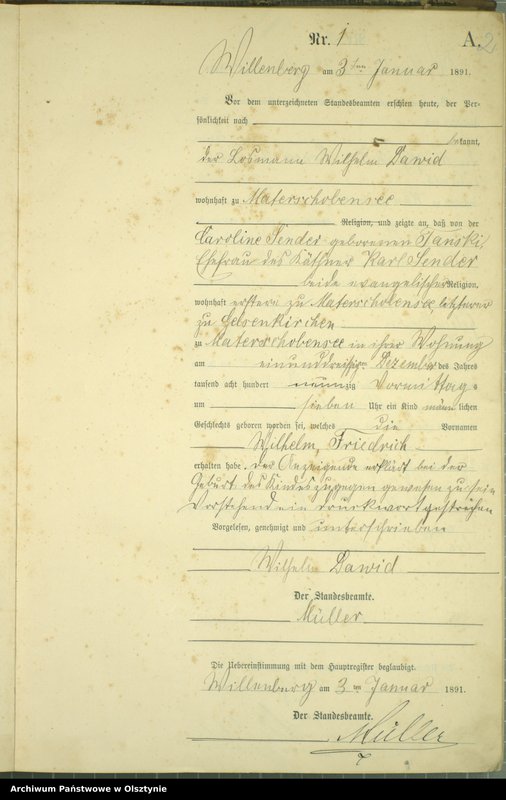 Nr. 1
A. 2
Willenberg am 3ten Januar 1891.
Vor dem unterzeichneten Standesbeamten erschien heute, der Per-
sönlichkeit nach
bekannt,
der Losmann Wilhelm Dawid
wohnhaft zu Materschobensee
Religion, und zeigte an, daß von der
Caroline Sender geborenen Stanski
Ehefrau des Käthner Karl Sender
beide evangelischer Religion,
wohnhaft erstere zu Materschobensee, letzterer
zu Gelsenkirchen
zu Materschobensee in ihrer Wohnung
am einunddreißigsten Dezember des Jahres
tausend acht hundert neunzig Vormittags
um sieben Uhr ein Kind männlichen
Geschlechts geboren worden sei, welches die Vornamen
Wilhelm, Friedrich
erhalten habe. Der Anzeigende erklärt bei der
Geburt des Kindes zugegen gewesen zu sein
Vorstehend ein Druckwort gestrichen
Vorgelesen, genehmigt und unterschrieben
Wilhelm Dawid
Der Standesbeamte.
Müller
Die Uebereinstimmung mit dem Hauptregister beglaubigt.
Willenberg am 3ten Januar 1891.
Der Standesbeamte.
Müller
Archiwum Państwowe w Olsztynie